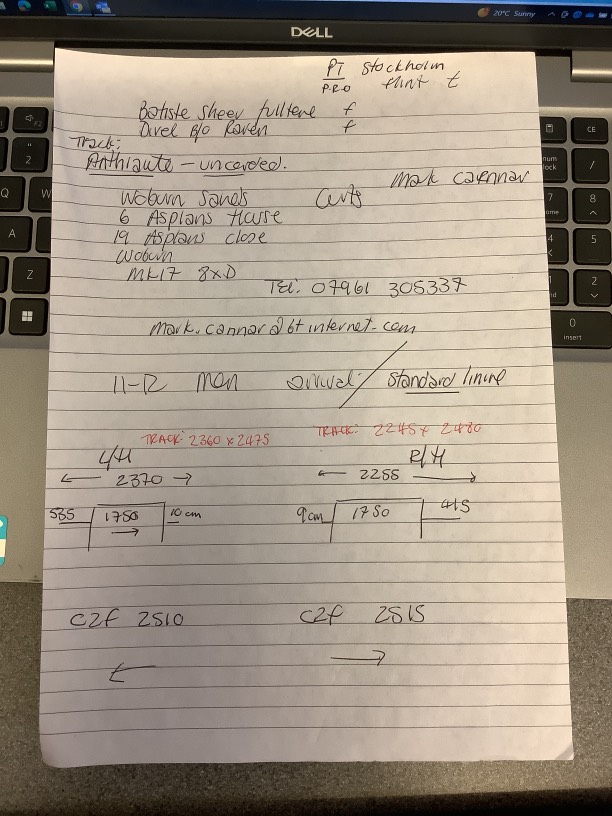 20°C Sunny
DELL
PT Stockholm
PRO flint t
Batiste Sheer fulltene f
Divel B/o Raven f
Track:
Anthracite - uncorded.
Mark Cannar
Woburn Sands Curts
6 Asplans House
19 Asplans close
Woburn
MK17 8XD
Tel: 07961 305337
mark.cannar@btinternet.com
11-12 mon arrival / Standard lining
TRACK: 2360 x 2475 TRACK: 2245 x 2480
L/H R/H
← 2370 → ← 2255 →
535 1750 10cm 9cm 1750 415
→
C2F 2510 C2F 2515
← →